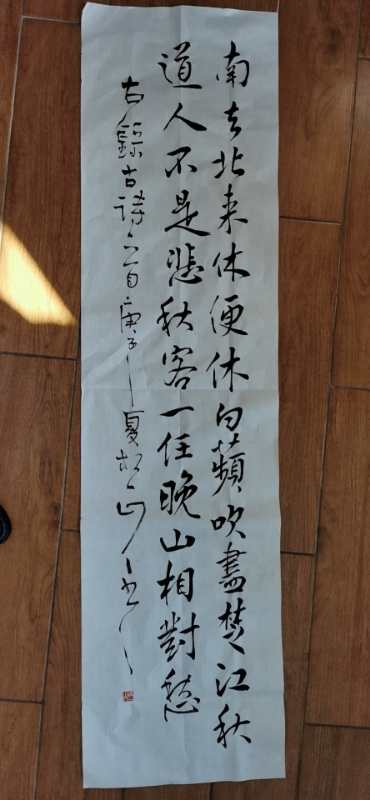 南去北来休便休白蘋吹盡楚江秋
道人不是悲秋客一任晚山相對愁
右録古詩一首庚子夏松